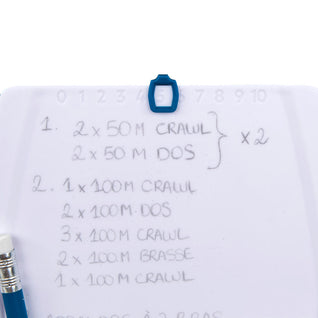 0 1 2 3 4 5 6 7 8 9 10
1. 2 x 50 M CRAWL
2 x 50 M DOS } x 2
2. 1 x 100 M CRAWL
2 x 100 M DOS
3 x 100 M CRAWL
2 x 100 M BRASSE
1 x 100 M CRAWL